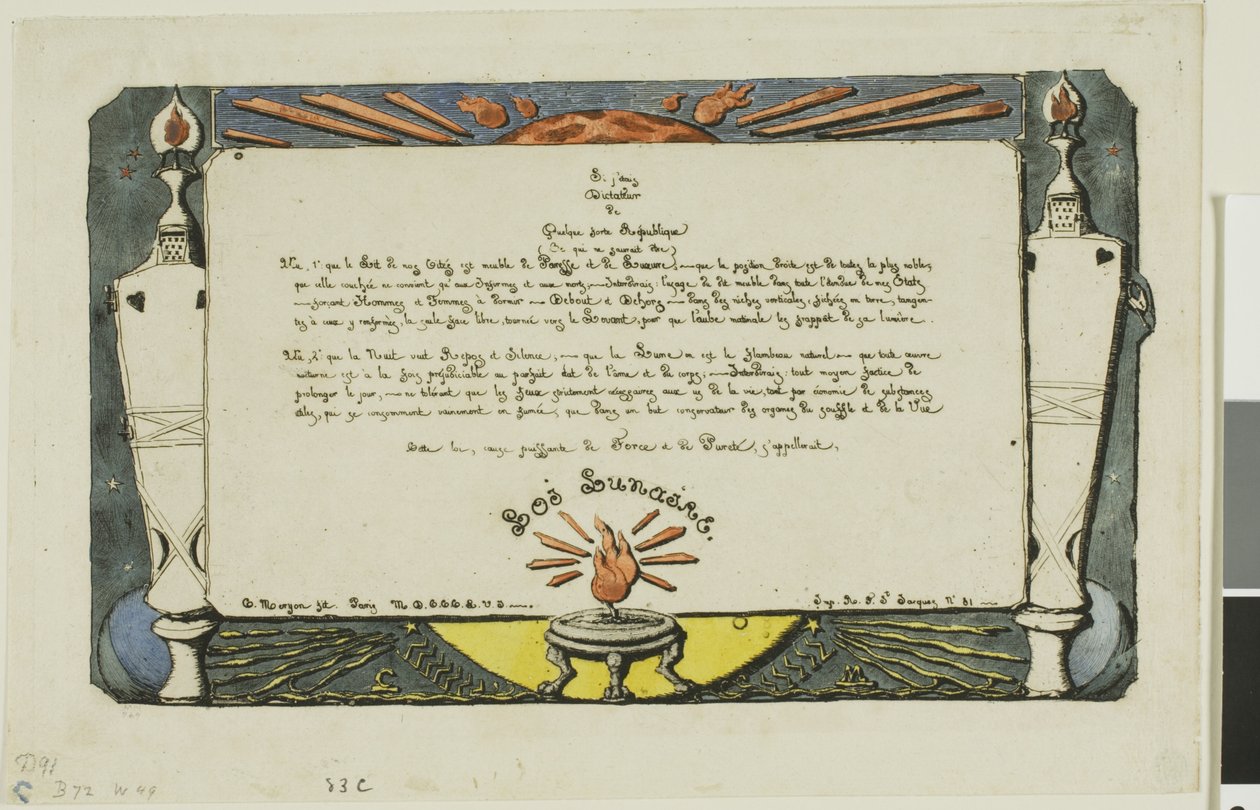 Si j'étais
Dictateur
de
Quelque sorte République
(Ce qui ne saurait être)
Vu, 1° que le Lit de nos Cités est meuble de Paresse et de Luxure; — que la position droite est de toutes la plus noble;
que celle couchée ne convient qu'aux Infirmes et aux morts, — Interdirais: l'usage de dit meuble dans toute l'étendue de mes États
— forçant Hommes et Femmes à dormir — Debout et Dehors — dans des niches verticales, fichées en terre, tangen-
tes à ceux y renfermés, la seule face libre, tournée vers le Levant, pour que l'aube matinale les frappât de sa lumière.
Vu, 2° que la Nuit veut Repos et Silence; — que la Lune en est le flambeau naturel — que toute œuvre
nocturne est à la fois préjudiciable au parfait état de l'âme et du corps; — Interdirais: tout moyen factice de
prolonger le jour, — ne tolérant que les feux strictement nécessaires aux us de la vie, tant par économie de substances
utiles, qui se consomment vainement en fumée, que dans un but conservateur des organes du souffle et de la Vue
Cette loi, cause puissante de Force et de Pureté, s'appellerait,
Loi Lunaire.
C. Meryon fit Paris M D.C.C.C.L.V.I —.
Imp. R. S.t Jacques N° 81 —
C M
D 91
C B 72 W 49
83 C